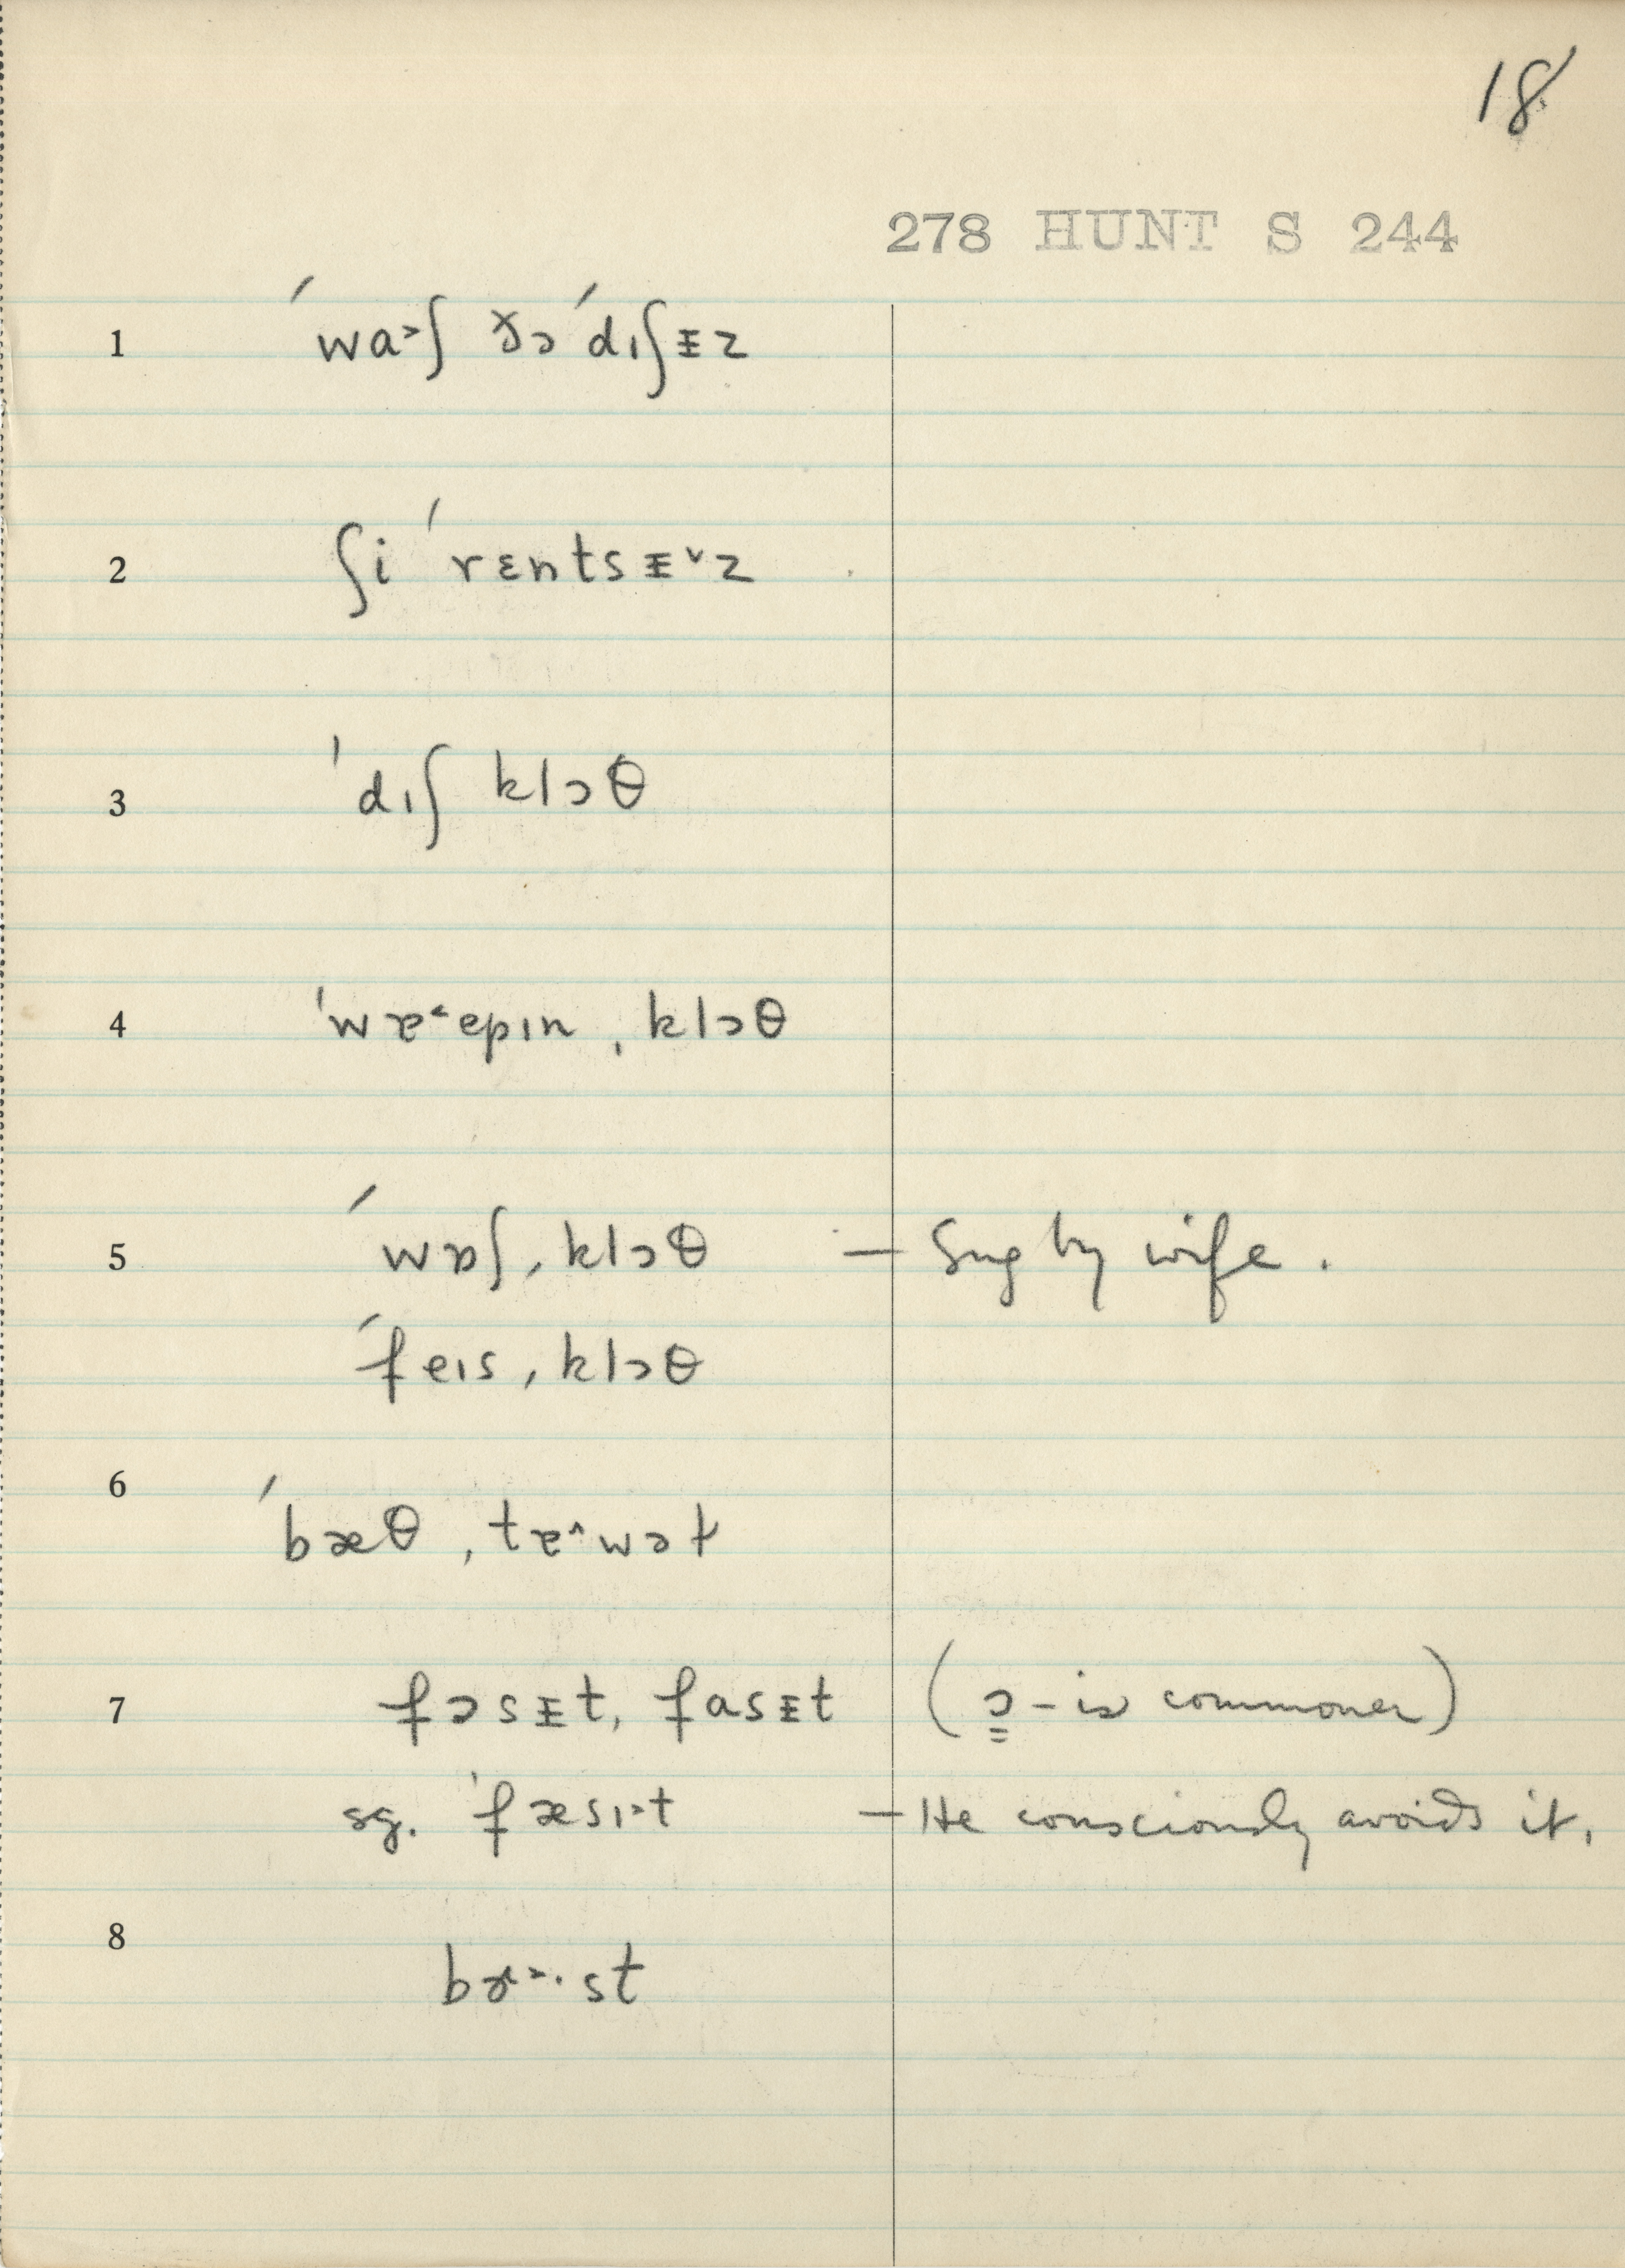 18
278 HUNT S 244
1 ´wa˃ʃ ðə ´dıʃᵻz
2 ʃi ´rɛntsᵻ˅z
3 ˈdıʃ klɔθ
4 ˈwɐ˂ɐpın ˌklɔθ
5 ´wɒʃ ˌklɔθ — Sug by wife.
´feıs ˌklɔθ
6 ´bæθ ˌtɐ˄wəɫ
7 fɔsᵻt, fasᵻt (ɔ – is commoner)
sg. ˈfæsı˃t — He consciously avoids it.
8 bɤ˃·st